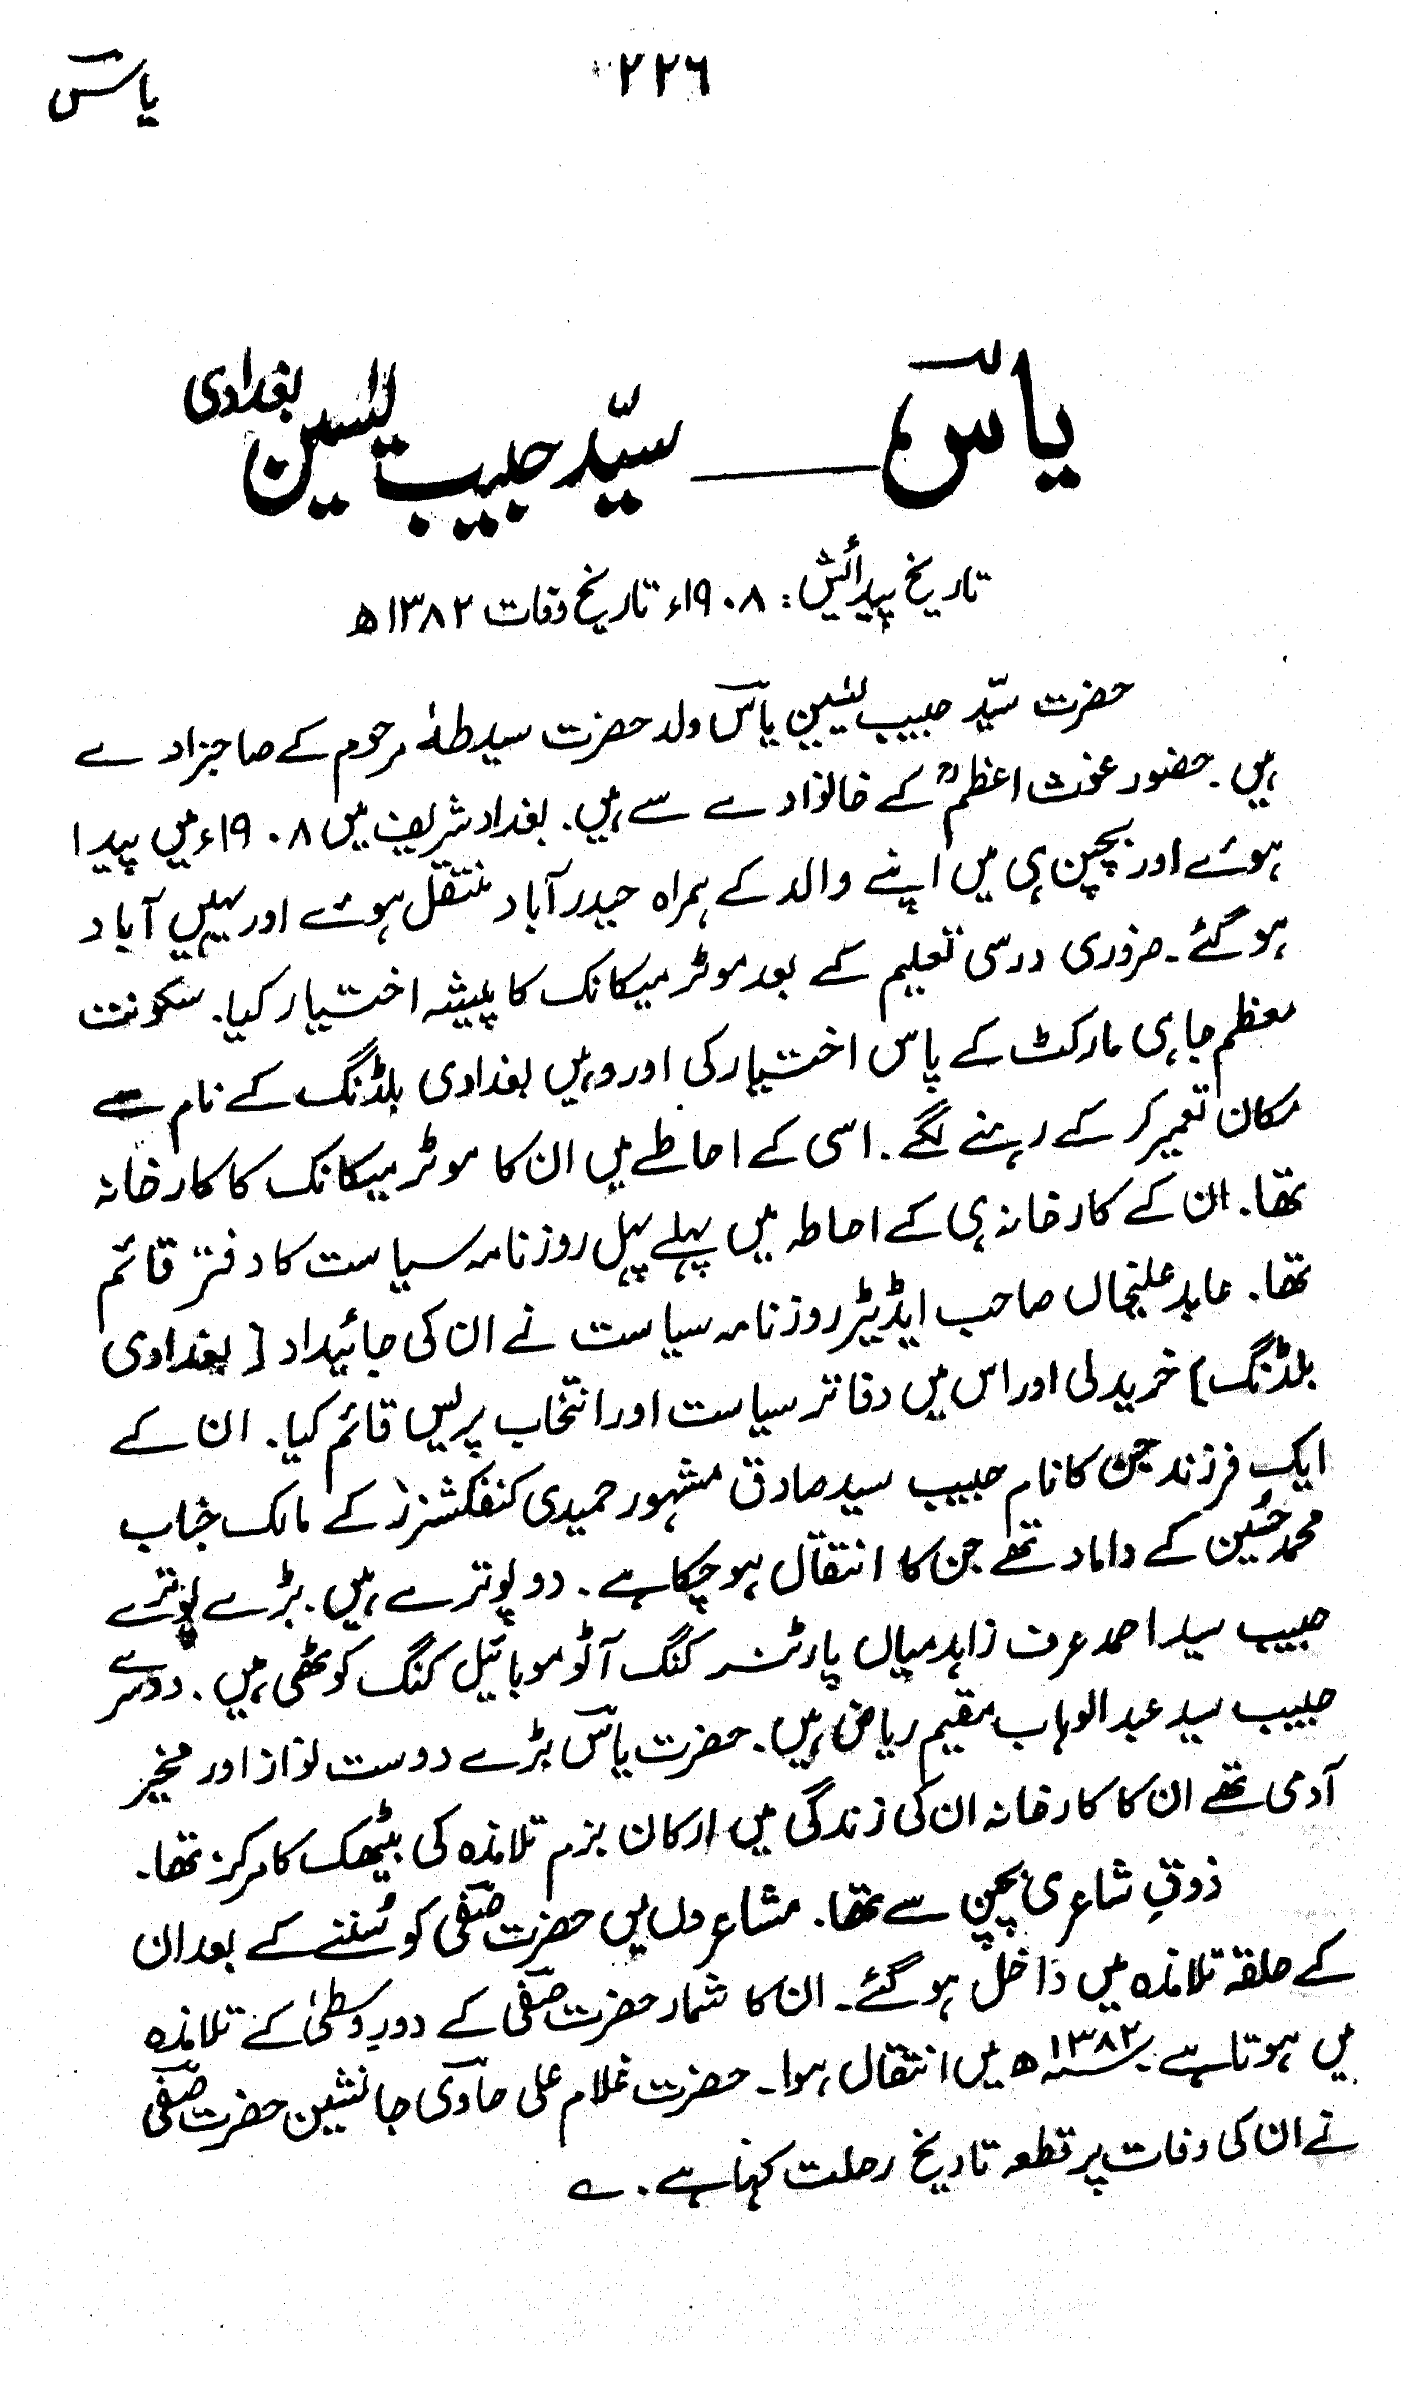 ۲۲۶
یاسؔ
یاسؔ ــــــ سیّد حبیب یٰسین بغدادی
تاریخ پیدائش: ۱۹۰۸ء تاریخ وفات ۱۳۸۲ھ
حضرت سیّد حبیب یٰسین یاسؔ ولد حضرت سید طہٰ مرحوم کے صاحبزادے
ہیں۔ حضور غوث اعظمؒ کے خانوادے سے ہیں۔ بغداد شریف میں ۱۹۰۸ء میں پیدا
ہوئے اور بچپن ہی میں اپنے والد کے ہمراہ حیدرآباد منتقل ہوئے اور یہیں آباد
ہوگئے۔ ضروری درسی تعلیم کے بعد موٹر میکانک کا پیشہ اختیار کیا۔ سکونت
معظم جاہی مارکٹ کے پاس اختیار کی اور وہیں بغدادی بلڈنگ کے نام سے
مکان تعمیر کر کے رہنے لگے۔ اسی کے احاطے میں ان کا موٹر میکانک کا کارخانہ
تھا۔ ان کے کارخانہ ہی کے احاطہ میں پہلے پہل روزنامہ سیاست کا دفتر قائم
تھا۔ عابد علیخاں صاحب ایڈیٹر روزنامہ سیاست نے ان کی جائیداد [بغدادی
بلڈنگ] خرید لی اور اس میں دفاتر سیاست اور انتخاب پریس قائم کیا۔ ان کے
ایک فرزند جن کا نام حبیب سید صادق مشہور حمیدی کنفکشنرز کے مالک جناب
محمد حُسین کے داماد تھے جن کا انتقال ہو چکا ہے۔ دو پوترے ہیں۔ بڑے پوترے
حبیب سید احمد عرف زاہد میاں پارٹنر کنگ آٹو موبائیل کنگ کوٹھی ہیں۔ دوسرے
حبیب سید عبدالوہاب مقیم ریاض ہیں۔ حضرت یاسؔ بڑے دوست نواز اور مخیر
آدمی تھے ان کا کارخانہ ان کی زندگی میں ارکان بزم تلامذہ کی بیٹھک کا مرکز تھا۔
ذوقِ شاعری بچپن سے تھا۔ مشاعروں میں حضرت صفیؔ کو سُننے کے بعد ان
کے حلقہ تلامذہ میں داخل ہوگئے۔ ان کا شمار حضرت صفیؔ کے دورِ وسطیٰ کے تلامذہ
میں ہوتا ہے۔ سنہ ۱۳۸۲ھ میں انتقال ہوا۔ حضرت غلام علی حاویؔ جانشین حضرت صفیؔ
نے ان کی وفات پر قطعہ تاریخ رحلت کہا ہے۔ ے